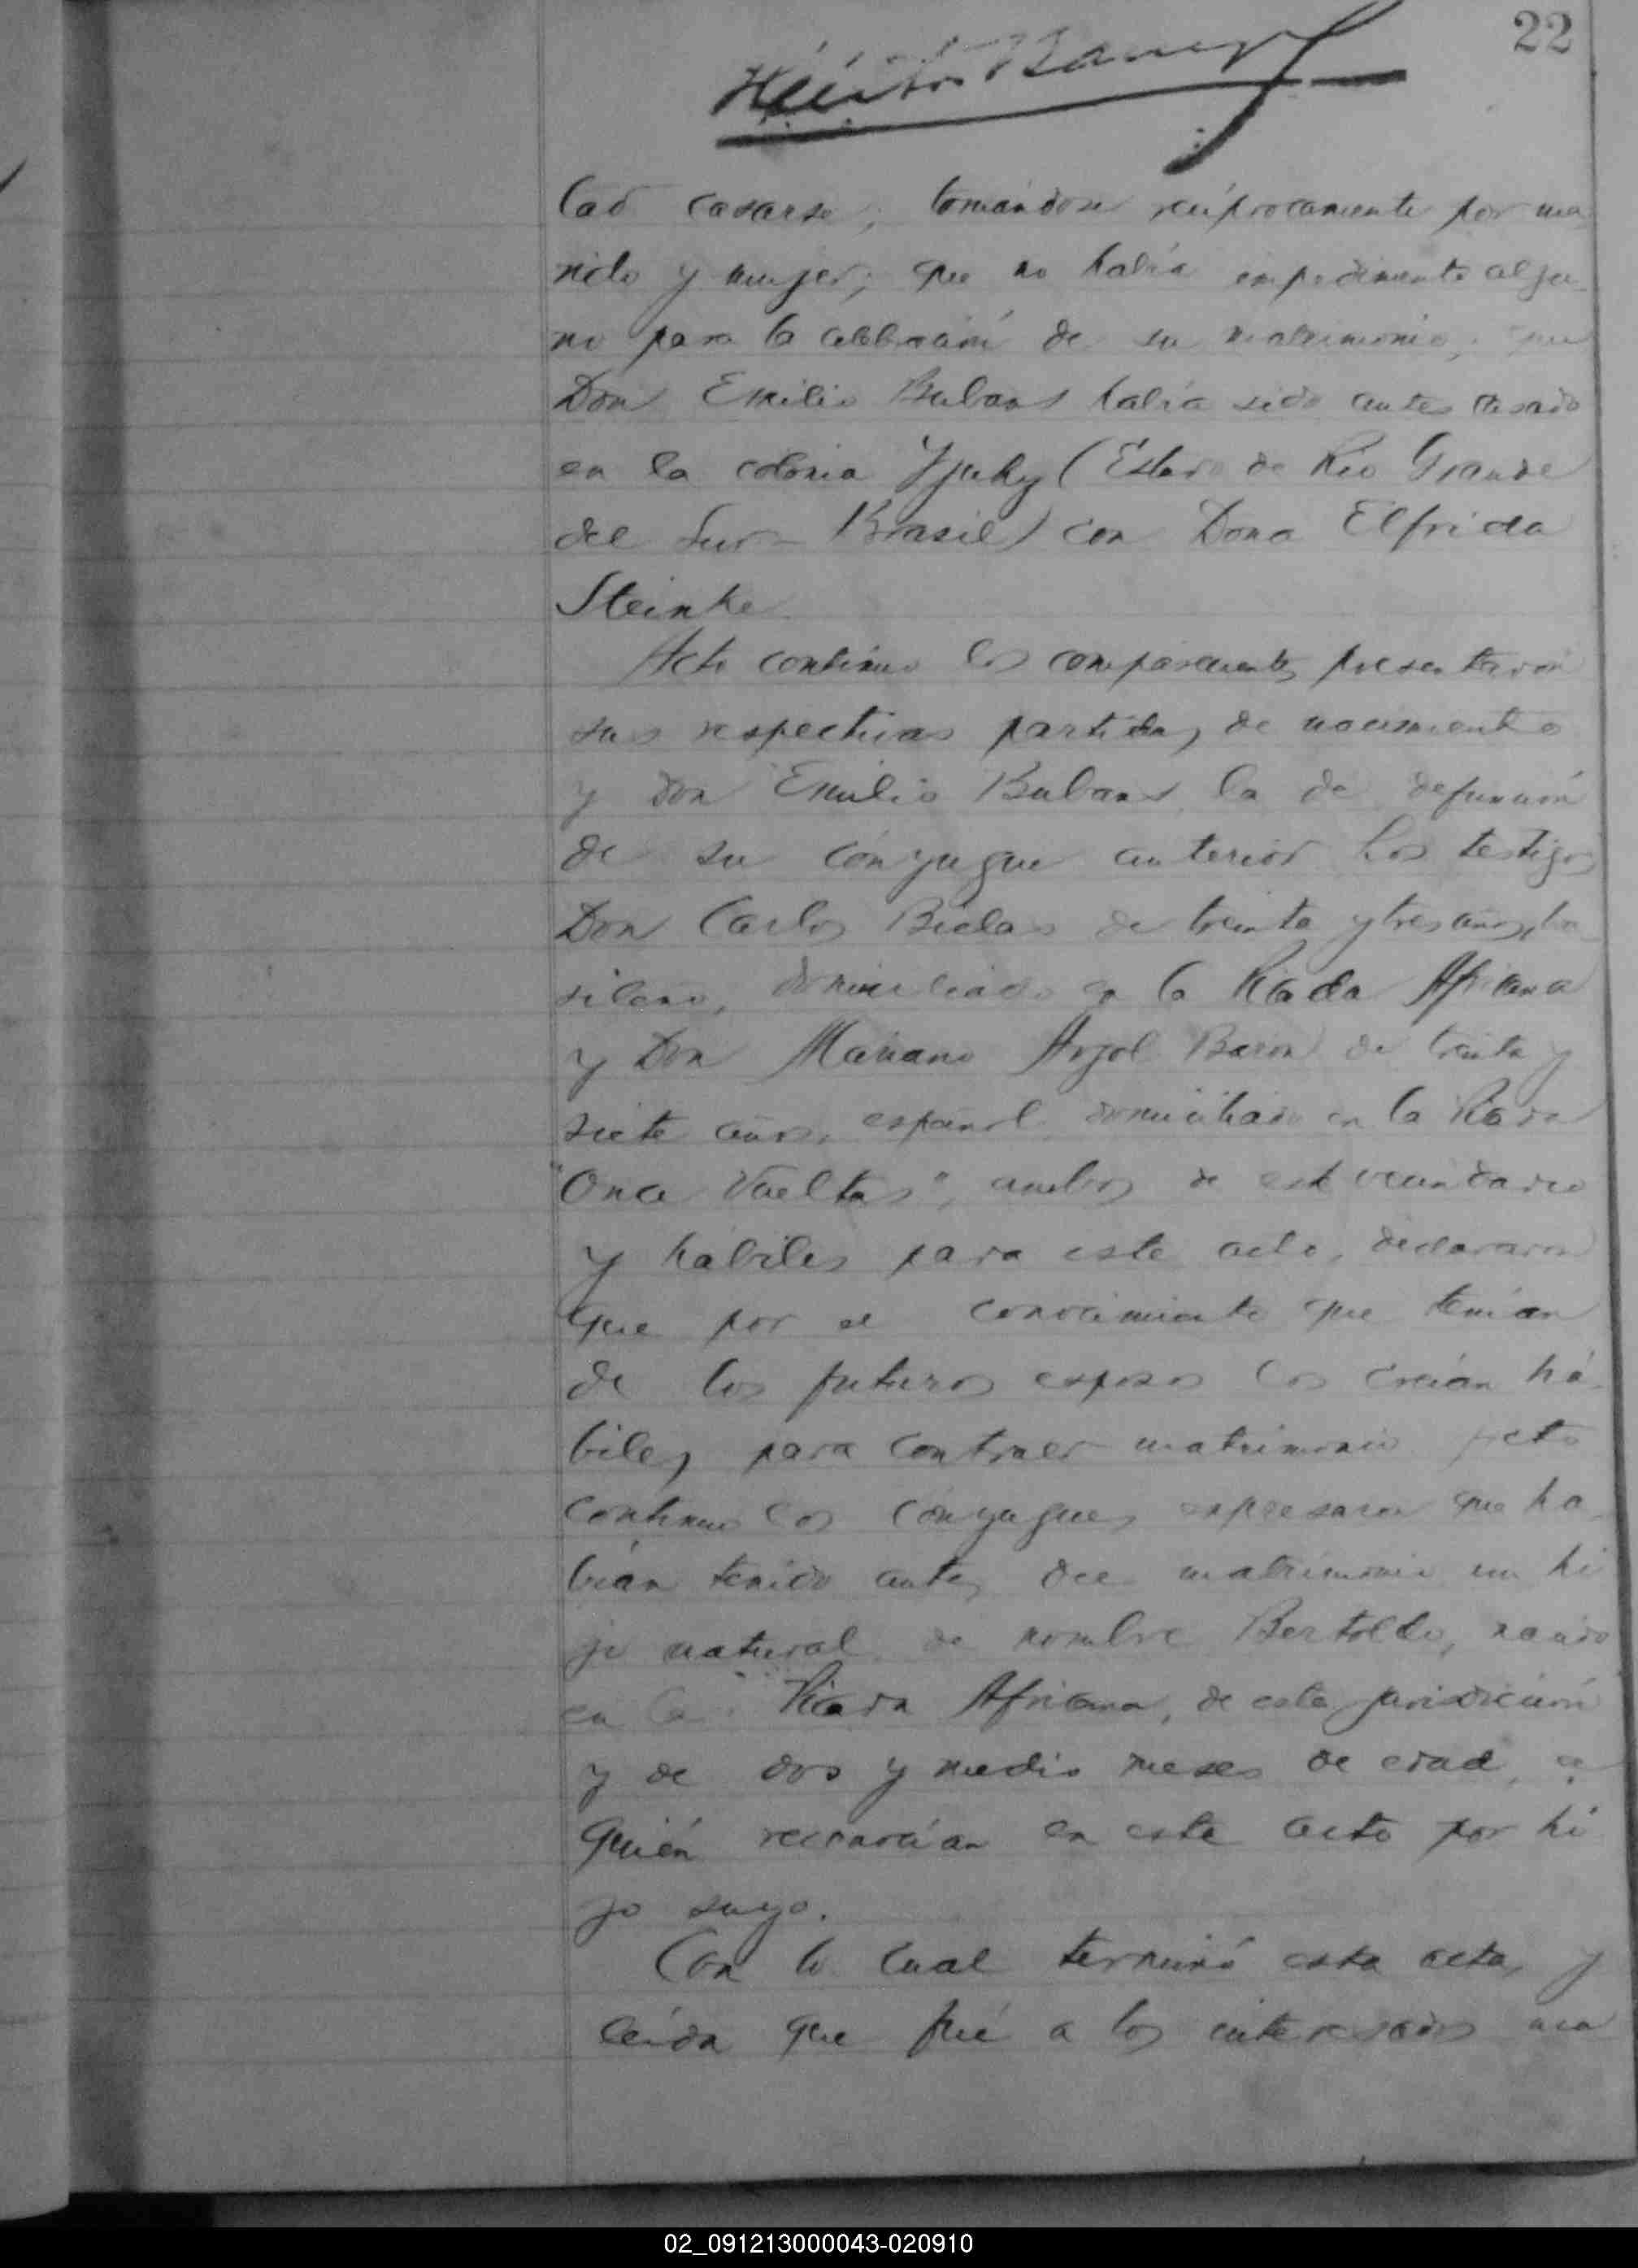 22
Héctor Barreyro
tad casarse; tomándose recíprocamente por ma
rido y mujer; que no había impedimento algu-
no para la celebración de su matrimonio; que
Don Emilio Bubans había sido antes casado
en la colonia Yjuhy (Estado de Rio Grande
del Sur - Brasil) con Dona Elfrida
Steinke
Acto contínuo los comparecientes presentaron
sus respectivas partidas de nacimiento
y don Emilio Bubans la de defunción
de su cónyugue anterior. Los testigos
Don Carlos Bielas de treinta y tres años, bra
sileno, domiciliado en la Picada Africana
y Don Mariano Argol Baron de treinta y
siete años, español domiciliado en la Picada
"Once Vueltas", ambos de este vecindario
y hábiles para este acto, declararon
que por el conocimiento que tenían
de los futuros esposos los creían há-
biles para contraer matrimonio. Acto
contínuo los cónyugues expresaron que ha-
bían tenido antes del matrimonio un hi
jo natural de nombre Bertoldo, nacido
en la Picada Africana, de esta jurisdicción
y de dos y medio meses de edad, a
quién reconocían en este acto por hi
jo suyo.
Con lo cual terminó esta acta, y
leída que fué a los interesados ma
02_091213000043-020910